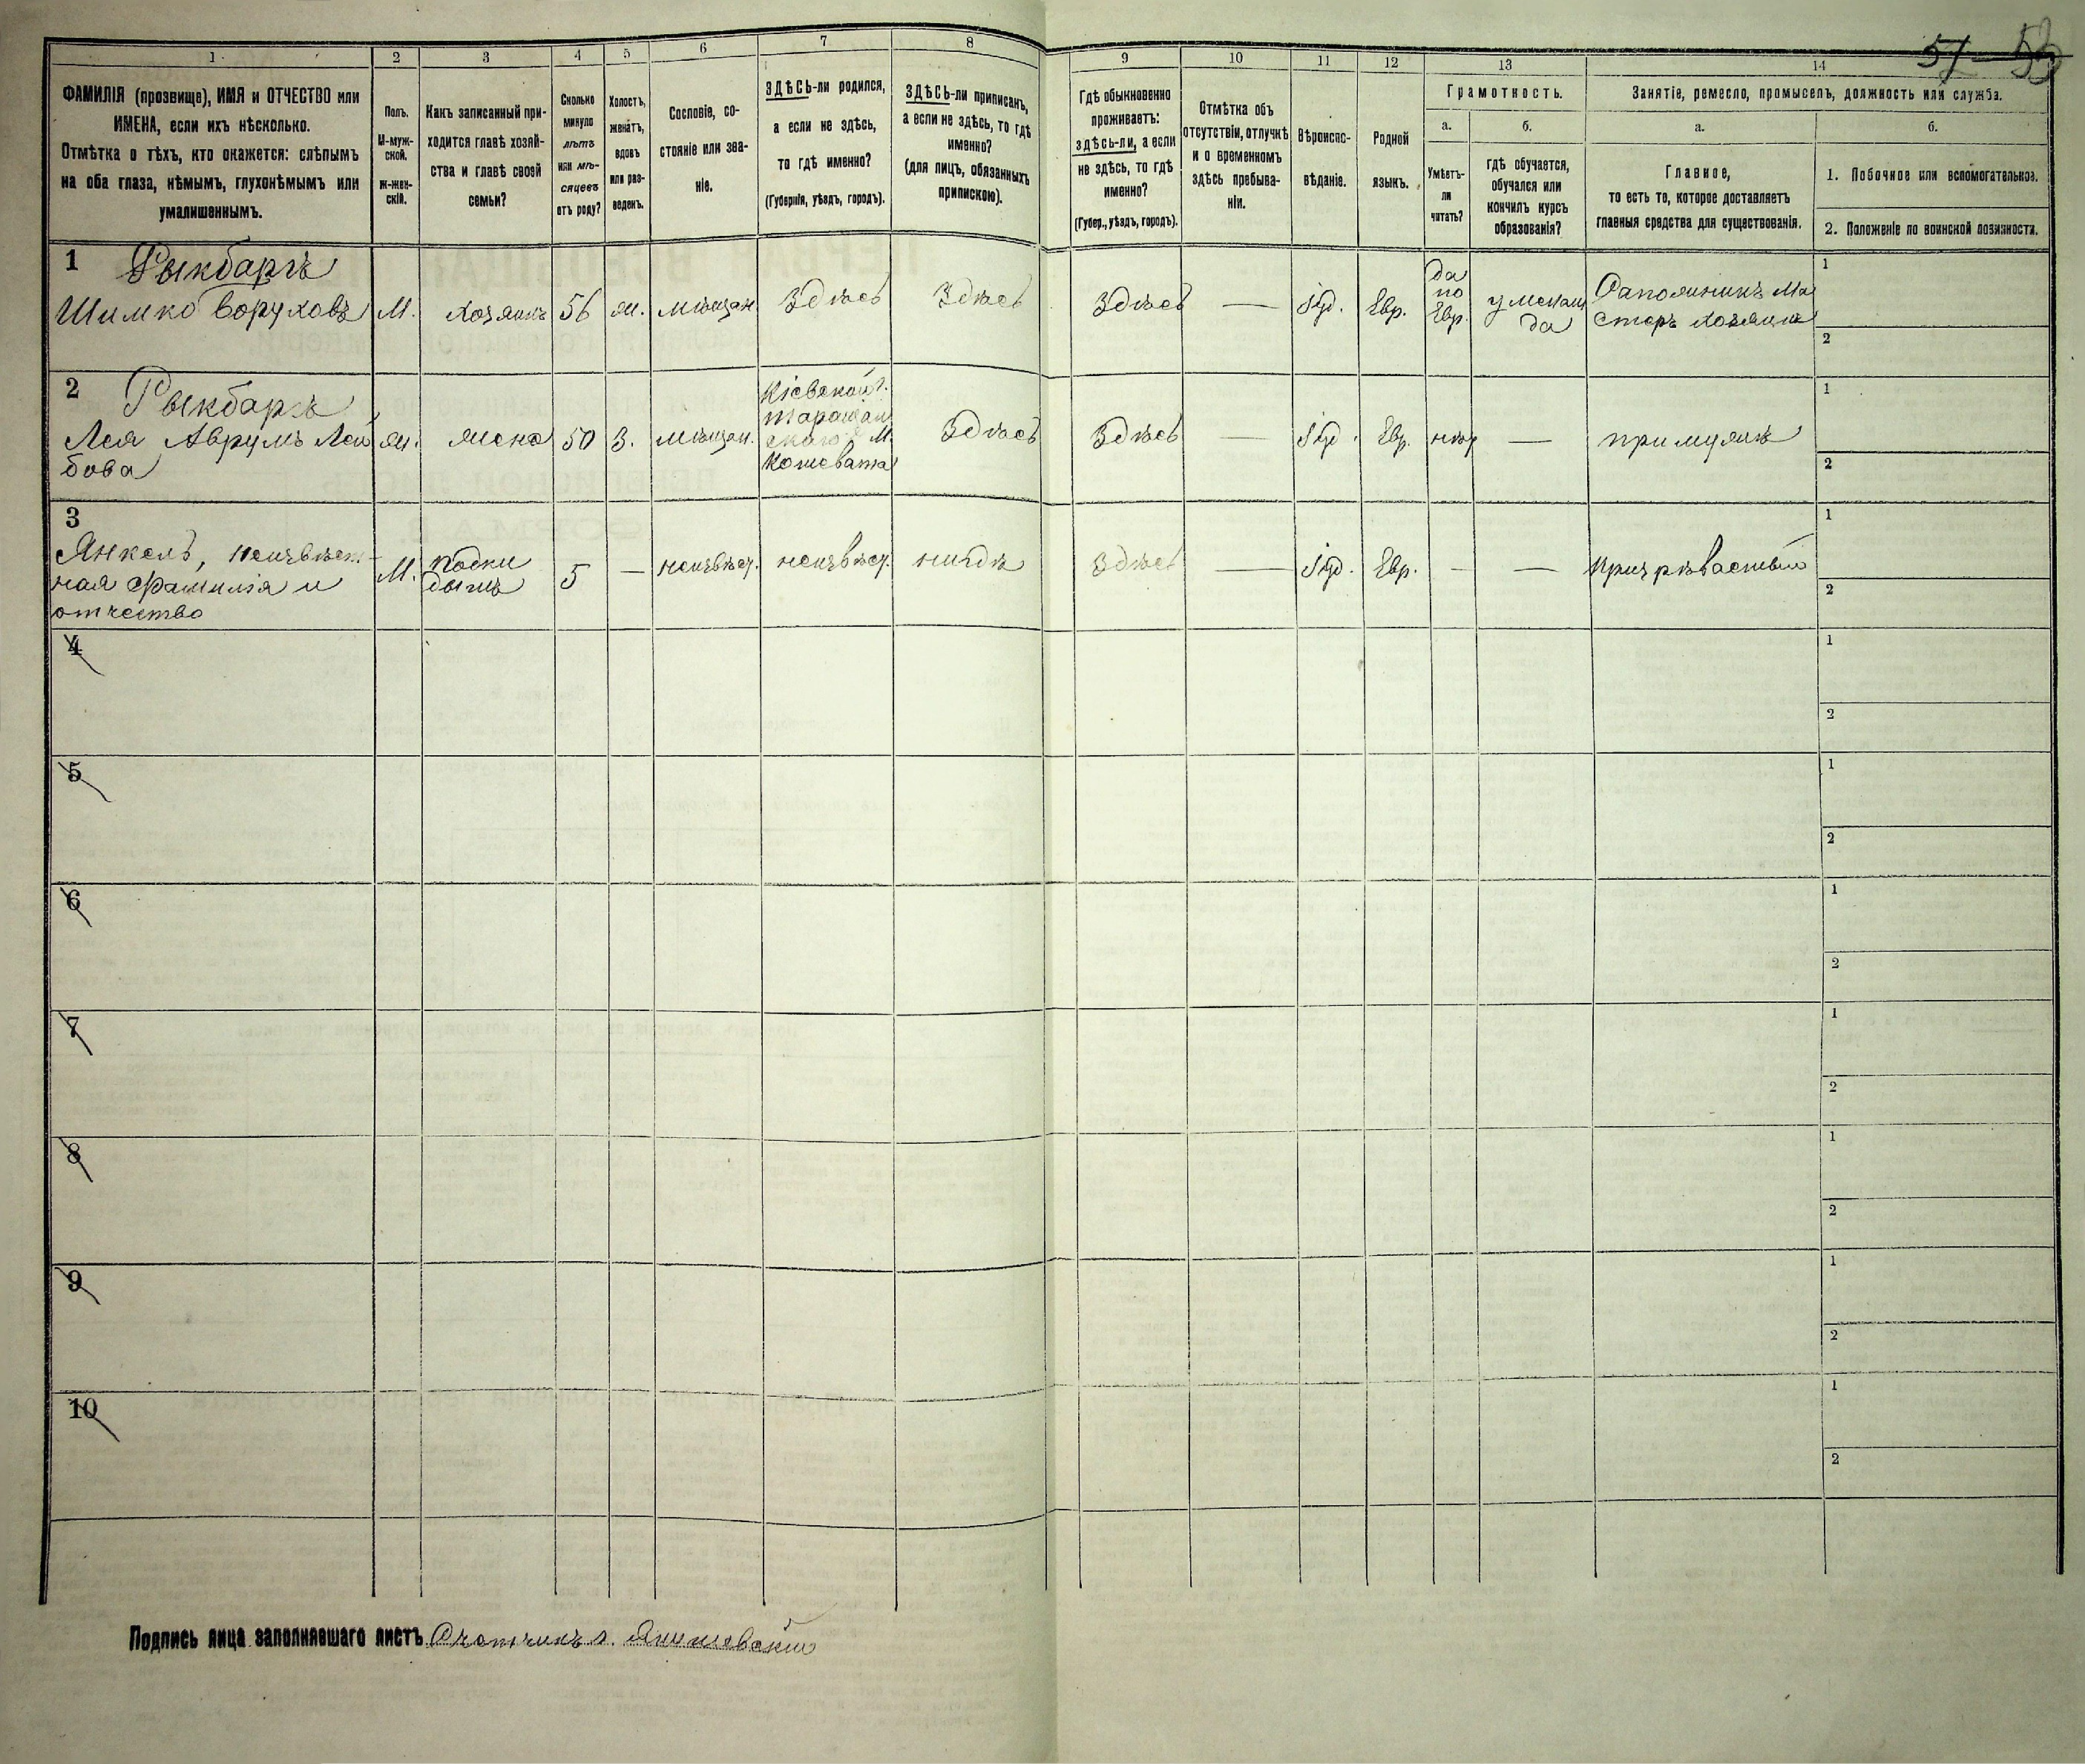 57 53
1 2 3 4 5 6 7 8 9 10 11 12 13 14
ФАМИЛІЯ (прозвище), ИМЯ и ОТЧЕСТВО или
ИМЕНА, если ихъ нѣсколько.
Отмѣтка о тѣхъ, кто окажется: слѣпымъ
на оба глаза, нѣмымъ, глухонѣмымъ или
умалишеннымъ.
Полъ.
М-муж-
ской.
Ж-жен-
скій.
Какъ записанный при-
ходится главѣ хозяй-
ства и главѣ своей
семьи?
Сколько
минуло
лѣтъ
или мѣ-
сяцевъ
отъ роду?
Холостъ,
женатъ,
вдовъ
или раз-
веденъ.
Сословіе, со-
стояніе или зва-
ніе.
ЗДѢСЬ-ли родился,
а если не здѣсь,
то гдѣ именно?
(Губернія, уѣздъ, городъ).
ЗДѢСЬ-ли приписанъ,
а если не здѣсь, то гдѣ
именно?
(для лицъ, обязанныхъ
припискою).
Гдѣ обыкновенно
проживаетъ:
здѣсь-ли, а если
не здѣсь, то гдѣ
именно?
(Губер., уѣздъ, городъ).
Отмѣтка объ
отсутствіи, отлучкѣ
и о временномъ
здѣсь пребыва-
ніи.
Вѣроиспо-
вѣданіе.
Родной
языкъ.
Грамотность.
а.
Умѣетъ-
ли
читать?
б.
гдѣ обучается,
обучался или
кончилъ курсъ
образованія?
Занятіе, ремесло, промыселъ, должность или служба.
а.
Главное,
то есть то, которое доставляетъ
главныя средства для существованія.
б.
1. Побочное или вспомогательное.
2. Положеніе по воинской повинности.
1 Рыкбаръ
ШимкоBoруховъ
М.
хозяинъ
56
ж.
мѣщан.
Здѣсь
Здѣсь
Здѣсь
—
Іуд.
Евр.
да
по
Евр.
у мелам
да
Сапожникъ Ма
стеръ хозяинъ
1
2
2 Рыкбаръ
Лея Аврумъ Лей
бова
ж.
жена
50
З.
мѣщан.
Кіевской г.
таращан
скаго у М.
Кошевата
Здѣсь
Здѣсь
—
Іуд.
Евр.
нѣт
—
при мужѣ
1
2
3
Янкель, неизвѣст-
ная фамилія и
отчество
М.
подки
дышъ
5
—
неизвѣст.
неизвѣст.
нигдѣ
Здѣсь
—
Іуд.
Евр.
—
—
призрѣваемый
1
2
4
1
2
5
1
2
6
1
2
7
1
2
8
1
2
9
1
2
10
1
2
Подпись лица заполнявшаго листъ Счетчикъ